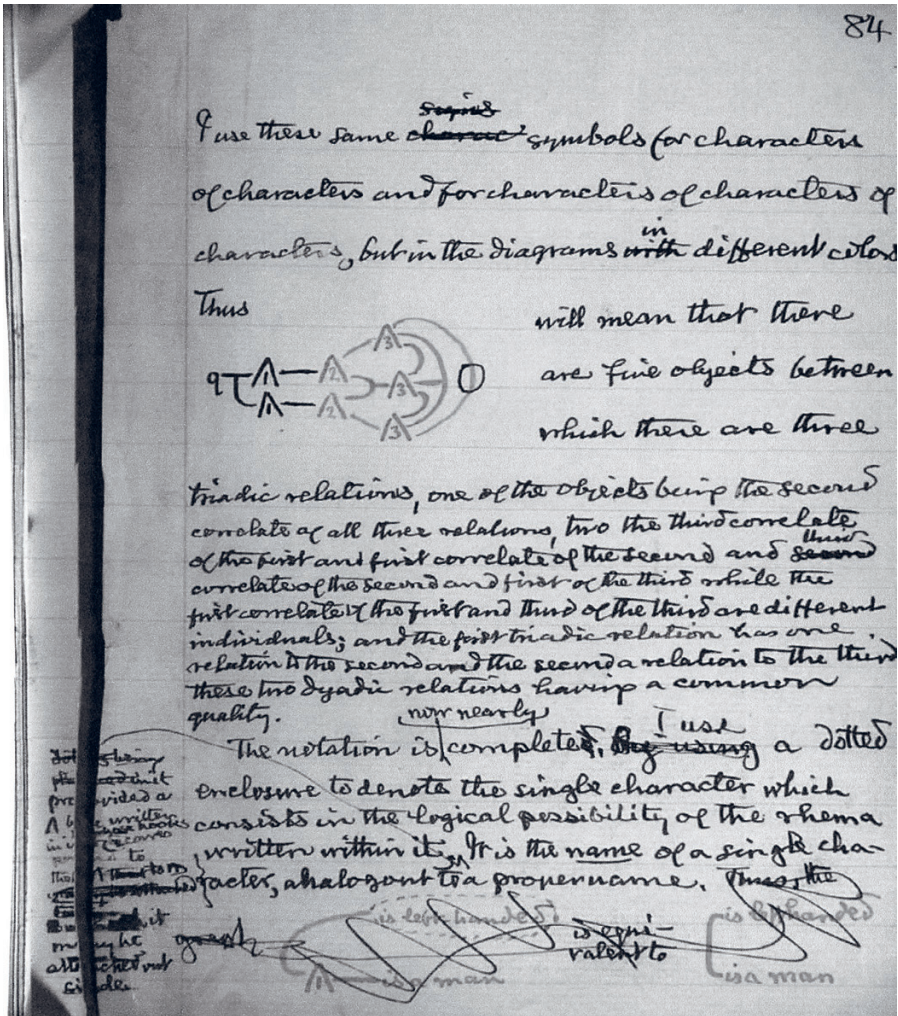 84
signs
I use these same charac symbols for characters
of characters and for characters of characters of
in
characters, but in the diagrams with different colors
Thus
will mean that there
are five objects between
which there are three
q 1 2 3
1 2 3
3
triadic relations, one of the objects being the second
correlate of all three relations, two the third correlate
third
of the first and first correlate of the second and second
correlate of the second and first of the third while the
first correlate of the first and third of the third are different
individuals; and the first triadic relation has one
relation to the second and the second a relation to the third
these two dyadic relations having a common
quality.
now nearly I use
The notation is completed, By using a dotted
enclosure to denote the single character which
consists in the logical possibility of the rhema
written within it. It is the name of a single cha-
racter, analogous to a proper name. Thus the
graph is left handed is equi- is left handed
valent to
is a man is a man
being
provided a
written
to
it
may be
attached out
side